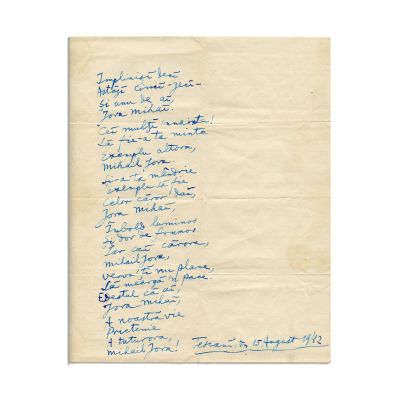 Împlinişi deci
Astăzi cinci-zeci-
şi unu de ai,
Jora Mihai.
Cei mulţi 'nainte!
Să fie-a ta minte
Exemplu altora,
Mihail Jora.
Fi-a ta mândrie
Exemplu să fie
Celor căror dai,
Jora Mihai,
Imbold luminos
Şi dor de frumos.
Iar cei cărora,
Mihail Jora,
Verva ţi nu place,
Să meargă 'n pace.
Destul că ai,
Jora Mihai,
A noastră vie
Prietenie
A tuturora,
Mihail Jora!
Tescani, în 15 August 1942